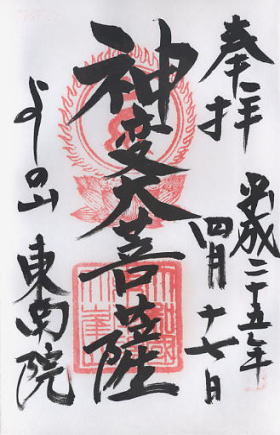 奉拝
平成二十五年
四月十七日
神変大菩薩
よしの山
東南院